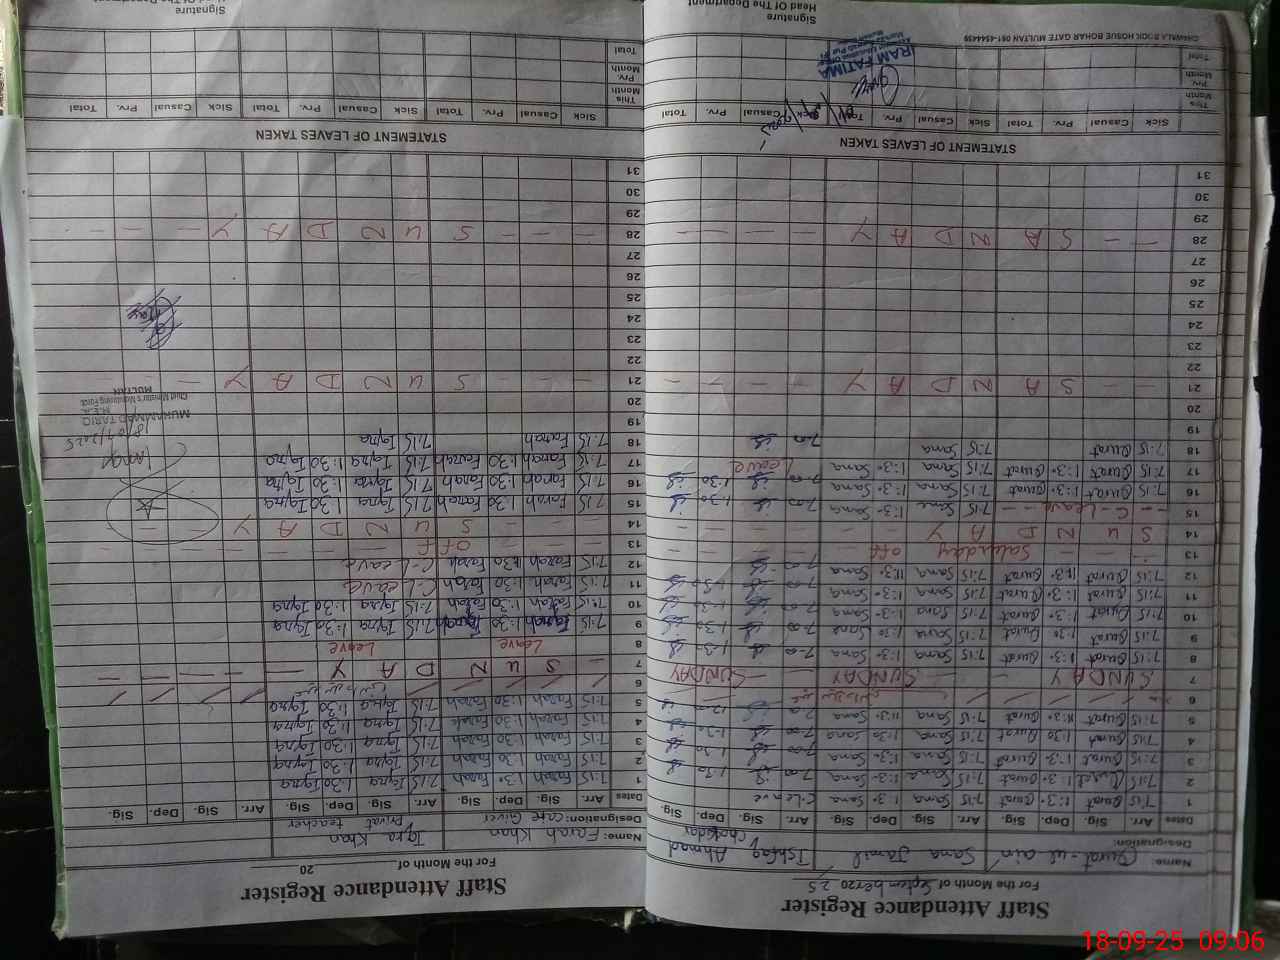 Staff Attendance Register
For the Month of September 20 25
Name: Qurat-ul-ain Sana Jamil Ishfaq Ahmad
Designation: Chokidar
Dates Arr. Sig. Dep. Sig. Arr. Sig. Dep. Sig. Arr. Sig. Dep. Sig.
1 7:15 Qurat 1:30 Qurat 7:15 Sana 1:30 Sana C-Leave
2 7:15 Qurat 1:30 Qurat 7:15 Sana 1:30 Sana 7-00 1:30
3 7:15 Qurat 1:30 Qurat 7:15 Sana 1:30 Sana 7-00 1:30
4 7:15 Qurat 1:30 Qurat 7:15 Sana 1:30 Sana 7-00 1:30
5 7:15 Qurat 11:30 Qurat 7:15 Sana 11:30 Sana 12-00
6
7 SUNDAY SUNDAY SUNDAY
8 7:15 Qurat 1:30 Qurat 7:15 Sana 1:30 Sana 7-00 1:30
9 7:15 Qurat 1:30 Qurat 7:15 Sana 1:30 Sana 7-00 1:30
10 7:15 Qurat 1:30 Qurat 7:15 Sana 1:30 Sana 7-00 1:30
11 7:15 Qurat 1:30 Qurat 7:15 Sana 1:30 Sana 7-00 1:30
12 7:15 Qurat 11:30 Qurat 7:15 Sana 11:30 Sana 7-00
13 Saturday off
14 S U N D A Y
15 C-Leave 7:15 Sana 1:30 Sana 7-00 1:30
16 7:15 Qurat 1:30 Qurat 7:15 Sana 1:30 Sana 7-00 1:30
17 7:15 Qurat 1:30 Qurat 7:15 Sana 1:30 Sana Leave
18 7:15 Qurat 7:15 Sana 7-00
19
20
21 S A N D A Y
22
23
24
25
26
27
28 S A N D A Y
29
30
31
STATEMENT OF LEAVES TAKEN
Sick Casual Prv. Total Sick Casual Prv. Total Sick Casual Prv. Total
This Month
Prv. Month
Total
RAM FATIMA
CHAWLA BOOK HOSUE BOHAR GATE MULTAN
Signature
Head Of The Department
Staff Attendance Register
For the Month of 20
Name: Farah Khan Iqra Khan
Designation: Care Giver Privat teacher
Dates Arr. Sig. Dep. Sig. Arr. Sig. Dep. Sig. Arr. Sig. Dep. Sig.
1 7:15 Farah 1:30 Farah 7:15 Iqra 1:30 Iqra
2 7:15 Farah 1:30 Farah 7:15 Iqra 1:30 Iqra
3 7:15 Farah 1:30 Farah 7:15 Iqra 1:30 Iqra
4 7:15 Farah 1:30 Farah 7:15 Iqra 1:30 Iqra
5 7:15 Farah 1:30 Farah 7:15 Iqra 1:30 Iqra
6
7 S U N D A Y
8 Leave Leave
9 7:15 Farah 1:30 Farah 7:15 Iqra 1:30 Iqra
10 7:15 Farah 1:30 Farah 7:15 Iqra 1:30 Iqra
11 7:15 Farah 1:30 Farah C-Leave
12 7:15 Farah 11:30 Farah C-Leave
13 OFF
14 S U N D A Y
15 7:15 Farah 1:30 Farah 7:15 Iqra 1:30 Iqra
16 7:15 Farah 1:30 Farah 7:15 Iqra 1:30 Iqra
17 7:15 Farah 1:30 Farah 7:15 Iqra 1:30 Iqra
18 7:15 Farah 7:15 Iqra
19
20
21 S U N D A Y
22
23
24
25
26
27
28 S U N D A Y
29
30
31
MUHAMMAD TARIQ
M.E.A.
Chief Minister's Monitoring Force
MULTAN
STATEMENT OF LEAVES TAKEN
Sick Casual Prv. Total Sick Casual Prv. Total Sick Casual Prv. Total
This Month
Prv. Month
Total
Signature
Head Of The Department
18-09-25 09:06